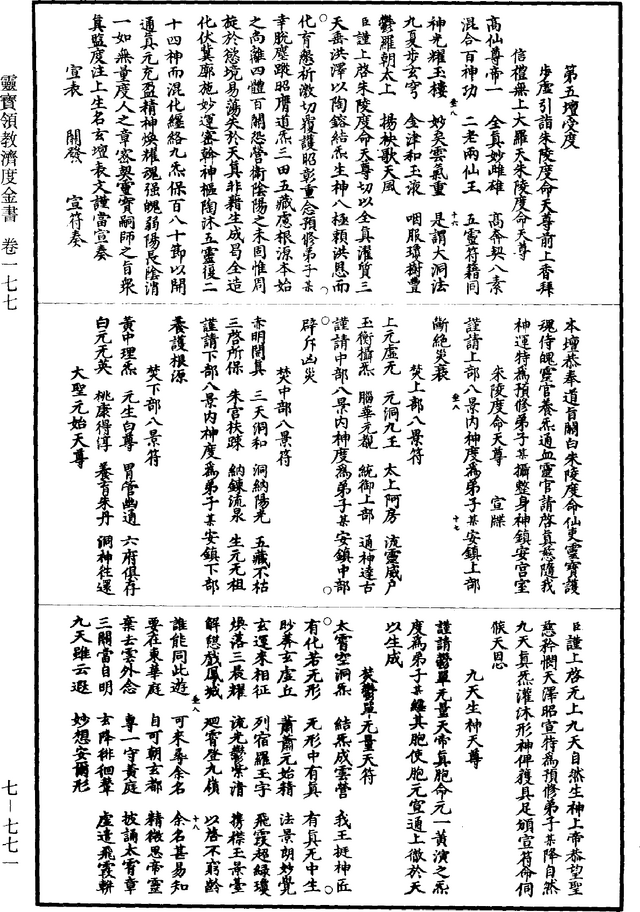 第五壇受度
步虛引詣朱陵度命天尊前上香拜
信禮無上大羅天朱陵度命天尊
高仙尊帝一　全真妙雌雄　高奔契八素
混合百神功　二老兩仙王　五靈符籍同
神光耀玉樓　妙矣雲氣重　是謂大洞法
九夏步玄穹　金津和玉液　咽服瓊樹豐
鬱羅朝太上　揚袂歌天風
臣謹上啓朱陵度命天尊切以全真濯質三
天垂洪澤以陶鎔結炁生神八極賴洪恩而
化育懇祈激切覆護昭彰重念預修弟子某
幸脫塵蹤昭膺道炁三田五藏慮根源本始
之尚離四體百關恐營衛陰陽之未固惟周
旋於慾境易蕩失於天真非藉生成曷全造
化伏冀廓施妙運密斡神樞陶沐五靈復二
十四神而混化纏絡九炁保百八十節以開
通真元充盈精神煥耀魂强魄弱陽長陰消
一如無量度人之章密契靈寶嗣師之旨衆
真監度注上生名玄壇表文謹當宣奏
宣表　關發　宣符奏
本壇恭奉道旨關白朱陵度命仙吏靈寶護
魂侍魄靈官養炁通血靈官請啓真慈隨我
神運特爲預修弟子某攝整身神鎮安宮室
朱陵度命天尊　宣牒
謹請上部八景內神度爲弟子某安鎮上部
斷絕災衰
焚上部八景符
上元虛无　元洞九王　太上阿房　流靈威户
玉衡攝炁　腦華元覩　統御上部　通神達古
謹請中部八景內神度爲弟子某安鎮中部
辟斥凶災
焚中部八景符
赤明開真　三天洞和　洞納陽光　五藏不枯
三啓所保　朱宮扶疎　納鍊流泉　生元无祖
謹請下部八景內神度爲弟子某安鎮下部
養護根源
焚下部八景符
黃中理炁　元生白尊　胃管幽通　六府俱存
白元无英　桃康得淳　養育朱丹　洞神往還
大聖元始天尊
臣謹上啓无上九天自然生神上帝恭望聖
慈矜憫天澤昭宣特爲預修弟子某降自然
九天真炁灌沐形神俾獲具足頒宣符命伺
候天恩
九天生神天尊
謹請鬱單无量天帝真胞命元一黃演之炁
度爲弟子某纏其胞使胞元宣通上徹於天
以生成
焚鬱單无量天符
太霄空洞炁　結炁成雲營　我王挺神匠
有化若无形　无形中有真　有真无中生
眇莽玄虛丘　蕭蕭元始精　法景朗妙覺
玄運來相征　列宿羅玉宇　飛霞超綠瓊
煥落三晨耀　流光鬱紫清　携襟玉景臺
解憩戲鳳城　廻霄登九嶺　以啓不窮齡
誰能同此遊　可來尋余名　余名甚易知
要在東華庭　自可朝玄都　精微思帝靈
棄去雲外念　專一守黃庭　披誦太霄章
三關當自明　玄降徘徊輦　虛遠飛霞輧
九天雖云遐　妙想安爾形
靈寶領教濟度金書　卷一七七
七－七七一